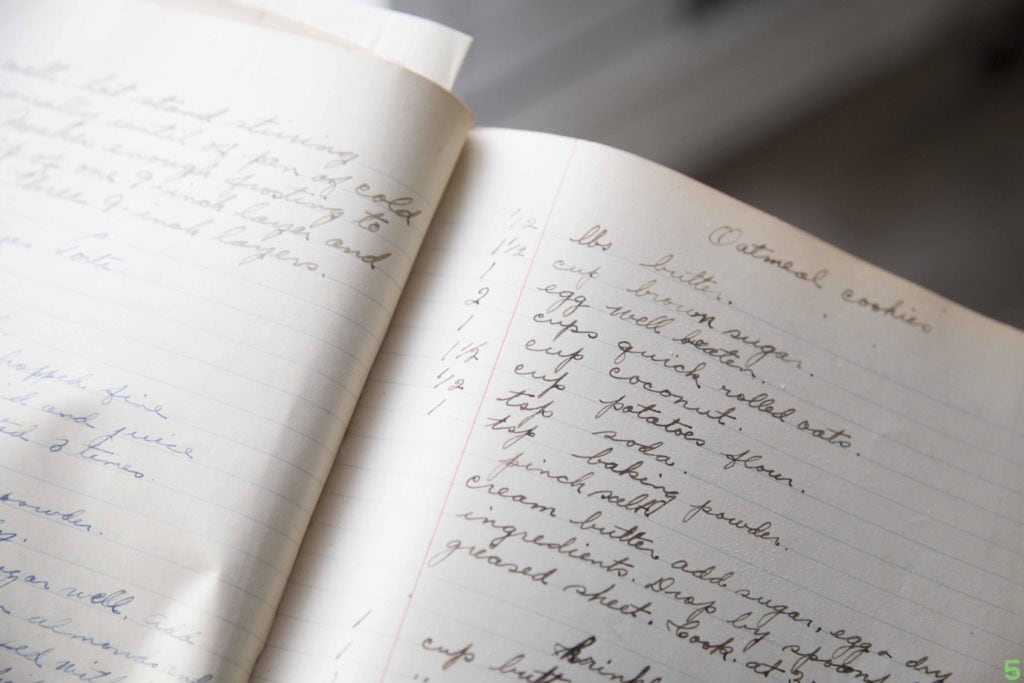 let stand stirring
until pan of cold
enough frosting to
of one 9 inch layer and
three 9 inch layers.
Torte
chopped fine
and juice
3 times.
powder.
sugar well, add
almonds and
with
Oatmeal cookies
1/2 lbs butter.
1 1/2 cup brown sugar.
1 egg well beaten.
2 cups quick rolled oats.
1 cup coconut.
1 1/2 cup potatoes flour.
1/2 tsp soda.
1 tsp baking powder.
pinch salt
cream butter add sugar, egg & dry
ingredients. Drop by spoons
greased sheet. Cook at
1 cup
1
5